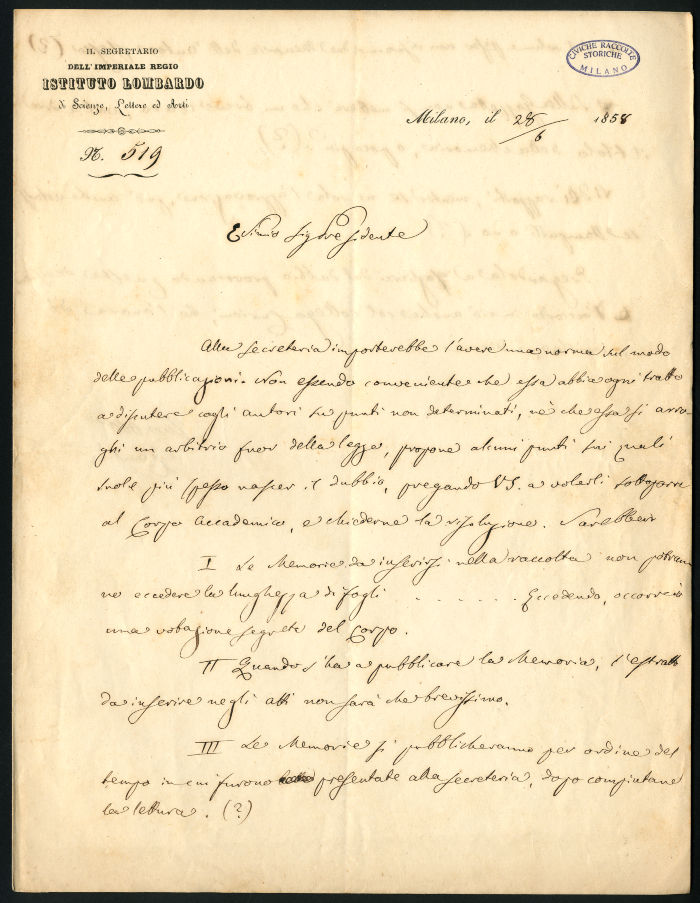 IL SEGRETARIO
DELL'IMPERIALE REGIO
ISTITUTO LOMBARDO
di Scienze, Lettere ed Arti
N. 519
CIVICHE RACCOLTE
STORICHE
MILANO
Milano, il 28/6 1858
Esimio Sig Presidente
Alla secreteria importerebbe l'avere una norma sul modo
delle pubblicazioni. Non essendo conveniente che essa abbia ogni tratto
a disputere cogli autori su punti non determinati, nè che essa si arro-
ghi un arbitrio fuor della legge, propone alcuni punti sui quali
suole più spesso nascer il dubbio, pregando VS. a volerli sottoporre
al Corpo Accademico, e chiederne la risoluzione. Sarebbero
I Le Memorie da inserirsi nella raccolta non potran
no eccedere la lunghezza di fogli . . . . . . . Eccedendo, occorrerà
una votazione segreta del Corpo.
II Quando s'ha a pubblicare la Memoria, l'estratto
da inserire negli atti non sarà che brevissimo.
III Le Memorie si pubblicheranno per ordine del
tempo in cui furono presentate alla secreteria, dopo compiutane
la lettura. (?)